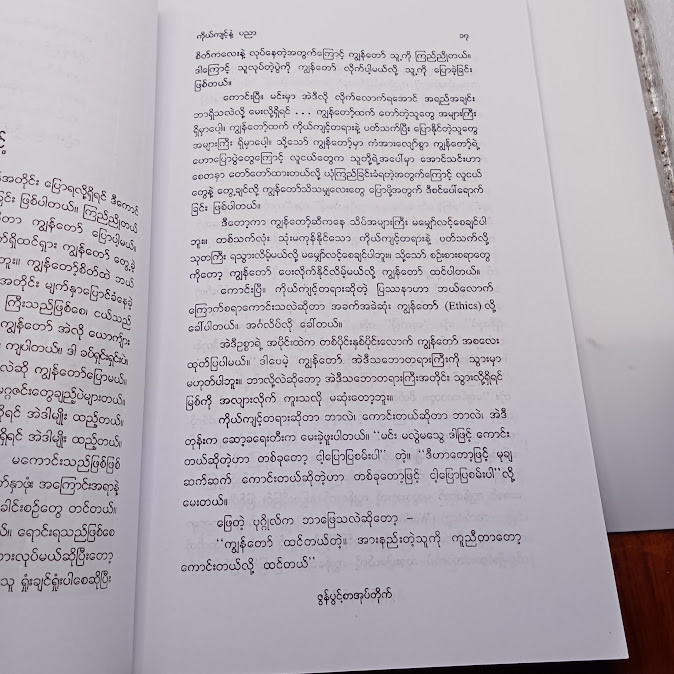 င့်
အတိုင်း ပြောရလို့ရှိရင် ဒီကောင်
ခြင်း ဖြစ်ပါတယ်။ ကြည်ညိုတယ်
တာ ကျွန်တော် ပြောပါ့မယ်။
ကျွန်တော် တွေ့ခဲ့
ဘူး။ ကျွန်တော့်စိတ်ထဲ ဘယ်
အတိုင်း မျက်နှာပြောင်ခံနေခဲ့
ကြီးသည်ဖြစ်စေ၊ ငယ်သည်
ကျွန်တော် အဲလို ယောကျ်ား
ကျပါတယ်။ ဒါ ခပ်ရှင်းရှင်းပဲ။
လဲဆို ကျွန်တော်ပြောမယ်။
မဂ္ဂဇင်းတွေချည်ပဲများတယ်။
ရင် အဲဒါမျိုး ထည့်တယ်။
ရှိရင် အဲဒါမျိုး ထည့်တယ်။
မကောင်းသည်ဖြစ်ဖြစ်
အကြောင်းအရာနဲ့
ခေါင်းစဉ်တွေ တင်တယ်။
ရောင်းရသည်ဖြစ်စေ
လုပ်မယ်ဆိုပြီးတော့
သူ ရှုံးချင်ရှုံးပါစေဆိုပြီး
ကိုယ်ကျင့်နှံ ပညာ ၁၇
စိတ်ကလေးနဲ့ လုပ်နေတဲ့အတွက်ကြောင့် ကျွန်တော် သူ့ကို ကြည်ညိုတယ်။
ဒါကြောင့် သူလုပ်တဲ့ပွဲကို ကျွန်တော် လိုက်ပါ့မယ်လို့ သူ့ကို ပြောခဲ့ခြင်း
ဖြစ်တယ်။
ကောင်းပြီ။ မင်းမှာ အဲဒီလို လိုက်လောက်ရအောင် အရည်အချင်း
ဘာရှိသလဲလို့ မေးလို့ရှိရင် . . . ကျွန်တော့်ထက် တော်တဲ့သူတွေ အများကြီး
ရှိမှာပေါ့။ ကျွန်တော့်ထက် ကိုယ်ကျင့်တရားနဲ့ ပတ်သက်ပြီး ပြောနိုင်တဲ့သူတွေ
အများကြီး ရှိမှာပေါ့။ သို့သော် ကျွန်တော့်မှာ ကံအားလျော်စွာ ကျွန်တော့်ရဲ့
ဟောပြောပွဲတွေကြောင့် လူငယ်တွေက သူတို့ရဲ့အပေါ်မှာ အောင်သင်းဟာ
စေတနာ တော်တော်ထားတယ်လို့ ယုံကြည်ခြင်းခံရတဲ့အတွက်ကြောင့် လူငယ်
တွေနဲ့ တွေ့ချင်လို့ ကျွန်တော်သိသမျှလေးတွေ ပြောဖို့အတွက် ဒီစင်ပေါ်ရောက်
ခြင်း ဖြစ်ပါတယ်။
ဒီတော့ကာ ကျွန်တော့်ဆီကနေ သိပ်အများကြီး မမျှော်လင့်စေချင်ပါ
ဘူး။ တစ်သက်လုံး သုံးမကုန်နိုင်သော ကိုယ်ကျင့်တရားနဲ့ ပတ်သက်လို့
သုတကြီး ရသွားလိမ့်မယ်လို့ မမျှော်လင့်စေချင်ပါဘူး။ သို့သော် စဉ်းစားစရာတွေ
ကိုတော့ ကျွန်တော် ပေးလိုက်နိုင်လိမ့်မယ်လို့ ကျွန်တော် ထင်ပါတယ်။
ကောင်းပြီ။ ကိုယ်ကျင့်တရားဆိုတဲ့ ပြဿနာဟာ ဘယ်လောက်
ကြောက်စရာကောင်းသလဲဆိုတာ အခက်အခဲဆုံး ကျွန်တော် (Ethics) လို့
ခေါ်ပါတယ်။ အင်္ဂလိပ်လို ခေါ်တယ်။
အဲဒီဥစ္စာရဲ့ အပိုင်းထဲက တစ်ပိုင်းနှစ်ပိုင်းလောက် ကျွန်တော် အစလေး
ထုတ်ပြပါမယ်။ ဒါပေမဲ့ ကျွန်တော် အဲဒီသဘောတရားကြီးကို သွားမှာ
မဟုတ်ပါဘူး။ ဘာလို့လဲဆိုတော့ အဲဒီသဘောတရားကြီးအတိုင်း သွားလို့ရှိရင်
မြစ်ကို အလျားလိုက် ကူးသလို မဆုံးတော့ဘူး။
ကိုယ်ကျင့်တရားဆိုတာ ဘာလဲ၊ ကောင်းတယ်ဆိုတာ ဘာလဲ၊ အဲဒီ
တုန်းက ဆော့ခရေးတီးက မေးခဲ့ဖူးပါတယ်။ “မင်း မလွဲမသွေ ဒါဖြင့် ကောင်း
တယ်ဆိုတဲ့ဟာ တစ်ခုတော့ ငါ့ပြောပြစမ်းပါ” တဲ့။ “ဒီဟာတော့ဖြင့် မုချ
ဆက်ဆက် ကောင်းတယ်ဆိုတဲ့ဟာ တစ်ခုတော့ဖြင့် ငါ့ပြောပြစမ်းပါ”လို့
မေးတယ်။
ဖြေတဲ့ ပုဂ္ဂိုလ်က ဘာဖြေသလဲဆိုတော့ –
“ကျွန်တော် ထင်တယ်တဲ့။ အားနည်းတဲ့သူကို ကူညီတာတော့
ကောင်းတယ်လို့ ထင်တယ်”
ဇွန်ပွင့်စာအုပ်တိုက်